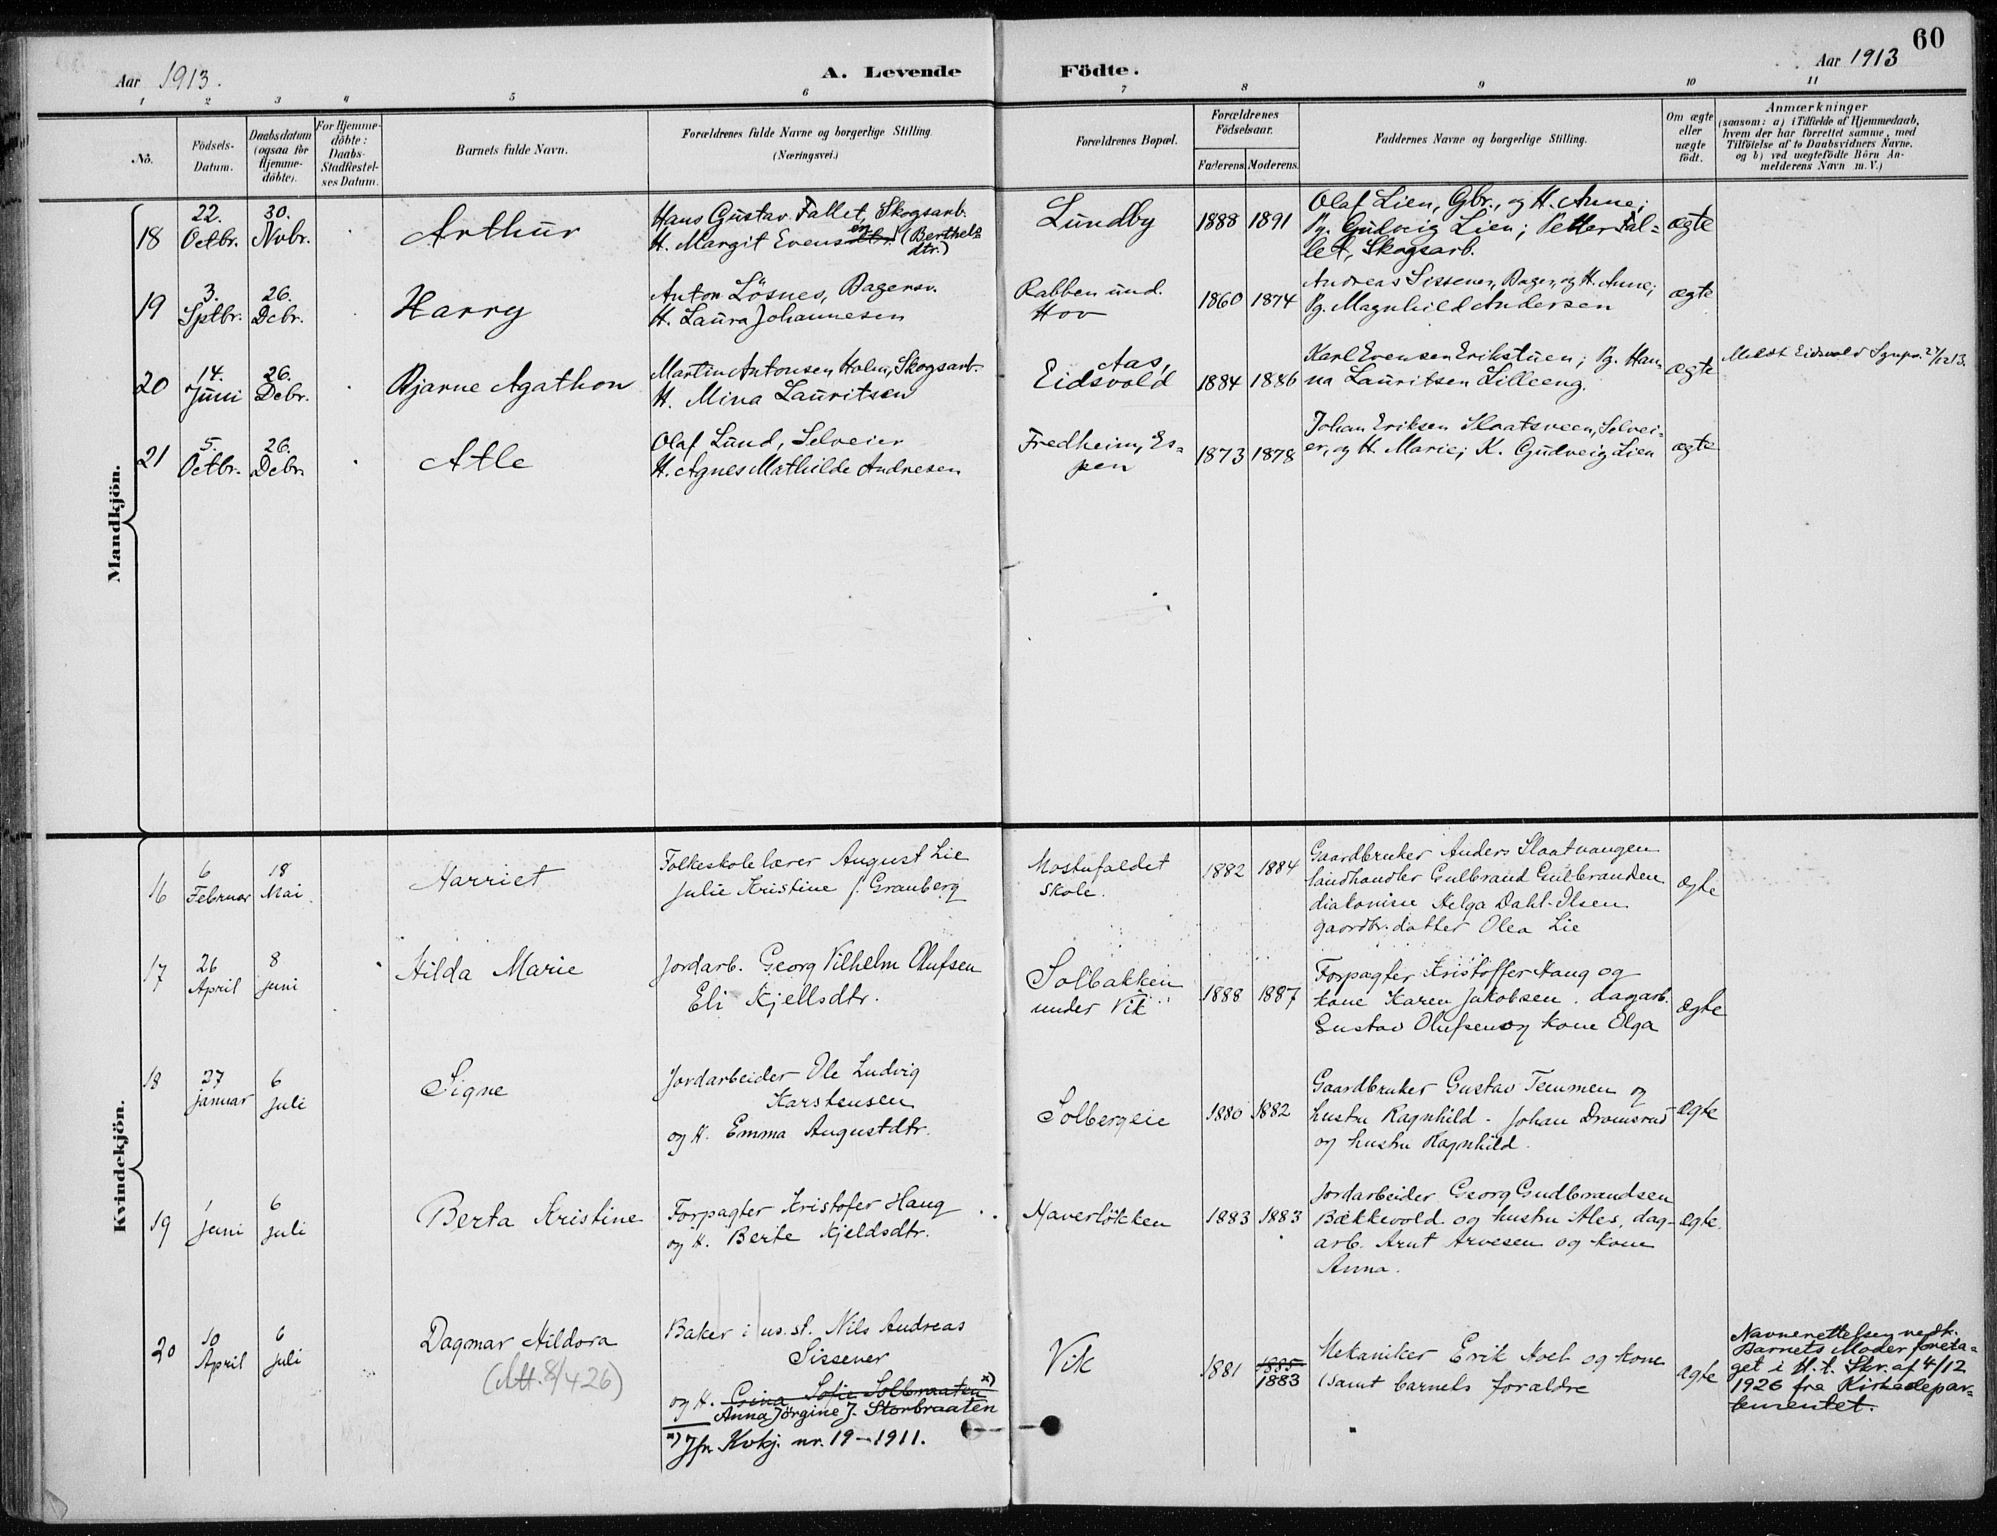 60
Aar 1913.
A. Levende
Födte.
Aar 1913
1 2 3 4 5 6 7 8 9 10 11
No.
Födsels-
Datum.
Daabsdatum
(ogsaa for
Hjemme-
döbte).
For Hjemme-
döbte:
Daabs-
Stadfæstel-
ses Datum.
Barnets fulde Navn.
Forældrenes fulde Navne og borgerlige Stilling.
(Næringsvei.)
Forældrenes Bopæl.
Forældrenes
Födselsaar.
Faderens. Moderens.
Faddernes Navne og borgerlige Stilling.
Om ægte
eller
uægte
födt.
Anmærkninger
(saasom: a) i Tilfælde af Hjemmedaab,
hvem der har forrettet samme, med
Tilföielse af to Daabsvidners Navne.
og b) ved uægtefödte Börn An-
melderens Navn m. V.)
Mandkjön.
18
22.
Octbr.
30.
Nvbr.
Arthur
Hans Gustav Fallet, Skogsarb.
H. Margit Evensdtr. en (Berthels
dtr.)
Lundby
1888 1891
Olaf Lien, Gbr., og H. Anne;
Pg. Gudveig Lien; Petter Fal-
let, Skogsarb.
ægte
19
3.
Sptbr.
26.
Dcbr.
Harry
Anton Lösnes, Bagersv.
H. Laura Johannesen
Rabben und.
Hov
1860 1874
Andreas Sissener, Bager, og H. Anne;
Pg. Magnhild Andersen
ægte
20
14.
Juni
26.
Dcbr.
Bjarne Agathon
Martin Antonsen Holm, Skogsarb.
H. Mina Lauritsen
Aas,
Eidsvold
1884 1886
Karl Evensen Erikstuen; Pg. Han-
na Lauritsen Lilleeng.
ægte
Meldt Eidsvold Sgnpr. 27/12 13.
21
5.
Octbr.
26.
Dcbr.
Atle
Olaf Lund, Selveier
H. Agnes Mathilde Andresen
Fredheim, Es-
pen
1873 1878
Johan Eriksen Slaatsveen, Selvei-
er, og H. Marie; K. Gudveig Lien
ægte
Kvindekjön.
16
6
Februar
18
Mai
Harriet
Folkeskolelærer August Lie
Julie Kristine f. Granberg
Mostufaldet
skole.
1882 1884
Gaardbruker Anders Slaatvangen
landhandler Gulbrand Gulbrandsen
diakonisse Helga Dahl-Olsen
gaardbr. datter Olea Lie
ægte
17
26
April
8
juni
Hilda Marie
Jordarb. Georg Vilhelm Olufsen
Eli Kjellsdtr.
Solbakken
under Vik
1888 1887
Forpagter Kristoffer Haug og
kone Karen Jakobsen. dagarb.
Gustav Olufsen og kone Olga
ægte
18
27
januar
6
juli
Signe
Jordarbeider Ole Ludvig
Karstensen
og H. Emma Augustdtr.
Solbergeie
1880 1882
Gaardbruker Gustav Temmen og
hustru Ragnhild. Johan Dromsrud
og hustru Ragnhild.
ægte
19
1
juni
6
juli
Berta Kristine
Forpagter Kristofer Haug
og H. Berte Kjeldsdtr.
Haverlökken
1883 1883
Jordarbeider Georg Gudbrandsen
Bækkevold og hustru Ales, dag-
arb. Arnt Arvesen og kone
Anna.
ægte.
20
10
April
6
juli
Dagmar Hildora
(Att. 8/4 26)
Baker i us. st. Nils Andreas
Sissener
og H. Grina Sofie Solbraaten x)
Anna Jörgine J. Storbraaten
x) Jfr. Kvkj. nr. 19 – 1911.
Vik
1881
1885
1883
Mekaniker Erik Hoel og kone
(samt barnets foraldre
ægte
Navnerettelsen vedk.
Barnets Moder foreta-
get i H. t. Skr. af 4/12
1926 fra Kirkedepar-
tementet.